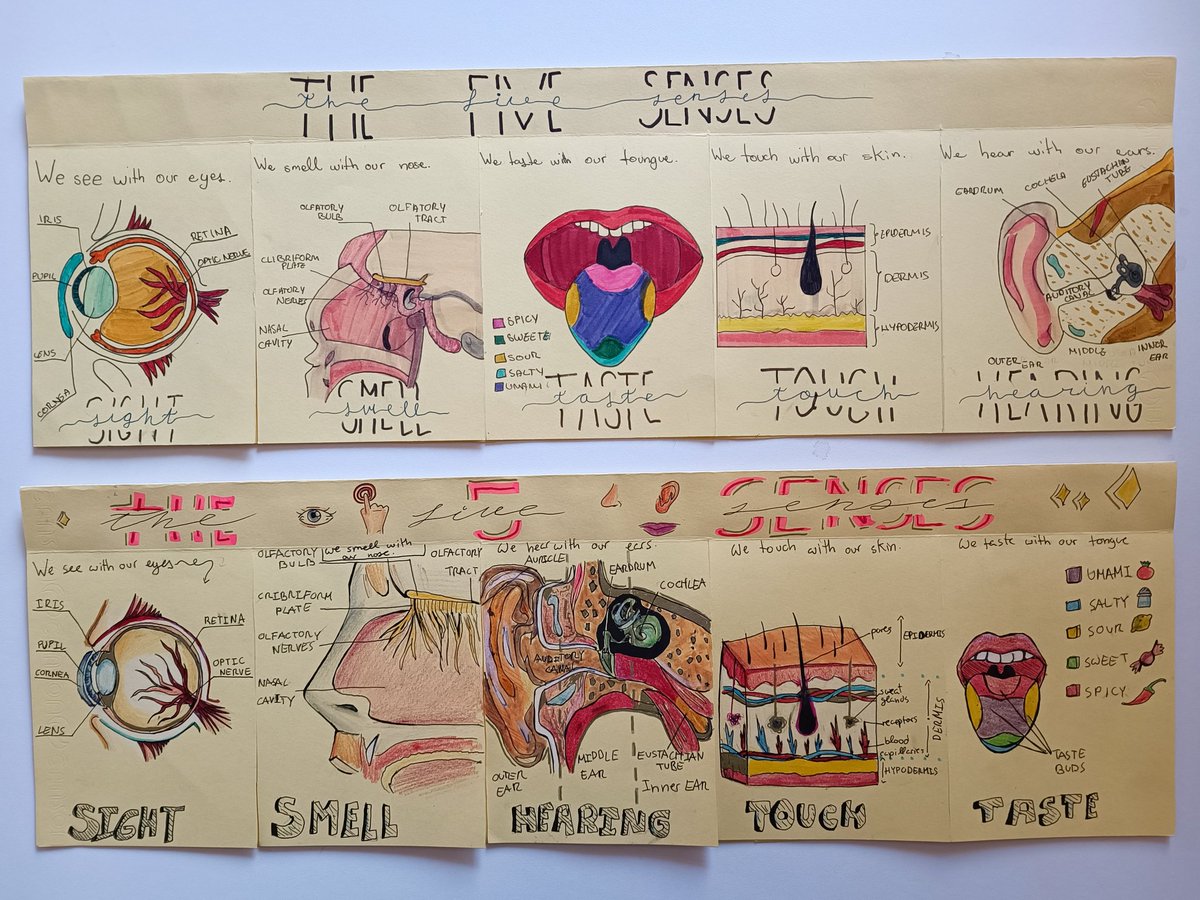 THE FIVE SENSES
the five senses
We see with our eyes.
IRIS
RETINA
OPTIC NERVE
PUPIL
LENS
CORNEA
SIGHT
sight
We smell with our nose.
OLFATORY
BULB
OLFATORY
TRACT
CLIBRIFORM
PLATE
OLFATORY
NERVES
NASAL
CAVITY
SMELL
smell
We taste with our toungue.
SPICY
SWEETE
SOUR
SALTY
UMAMI
TASTE
taste
We touch with our skin.
EPIDERMIS
DERMIS
HYPODERMIS
TOUCH
touch
We hear with our ears.
EARDRUM
COCHELA
EUSTACHIAN
TUBE
AUDITORY
CANAL
OUTER
EAR
MIDDLE
INNER
EAR
HEARING
hearing
THE 5 SENSES
the five senses
We see with our eyes
IRIS
RETINA
PUPIL
CORNEA
OPTIC
NERVE
LENS
SIGHT
OLFACTORY
BULB
We smell with
our nose.
OLFACTORY
TRACT
CRIBRIFORM
PLATE
OLFACTORY
NERVES
NASAL
CAVITY
SMELL
We hear with our ears.
AURICLE
EARDRUM
COCHLEA
AUDITORY
CANAL
OUTER
EAR
MIDDLE
EAR
EUSTACHIAN
TUBE
Inner EAR
HEARING
We touch with our skin.
pores
EPIDERMIS
sweat
glands
receptors
DERMIS
blood
HYPODERMIS
TOUCH
We taste with our tongue
UMAMI
SALTY
SOUR
SWEET
SPICY
TASTE
BUDS
TASTE